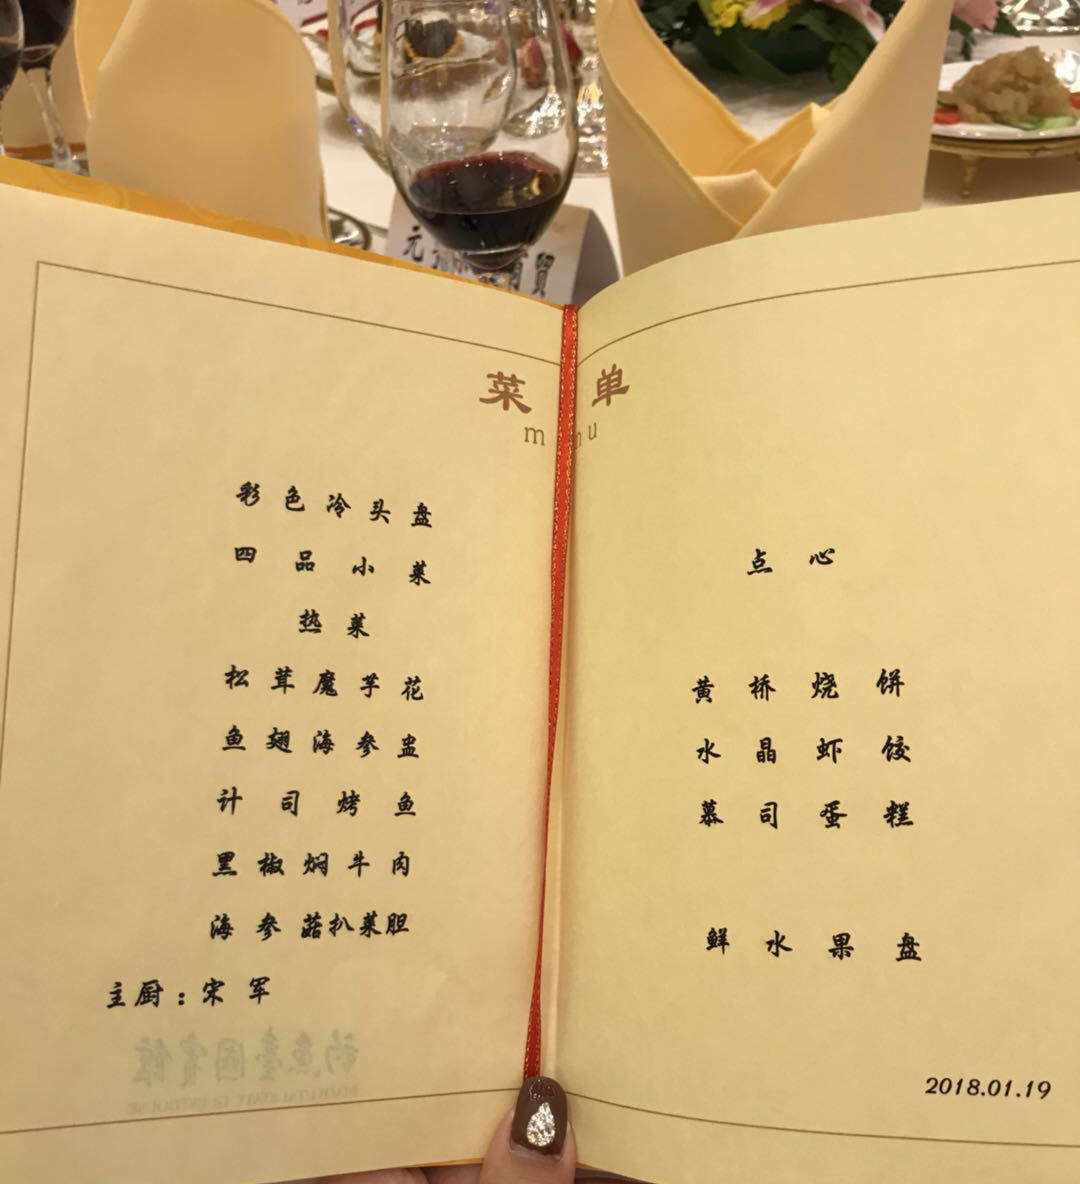 菜单
彩色冷头盘
四品小菜
热菜
松茸魔芋花
鱼翅海参盅
计司烤鱼
黑椒焖牛肉
海参菇扒菜胆
主厨：宋军
钓鱼臺國賓館
DIAOYUTAI STATE GUESTHOUSE
点心
黄桥烧饼
水晶虾饺
慕司蛋糕
鲜水果盘
2018.01.19